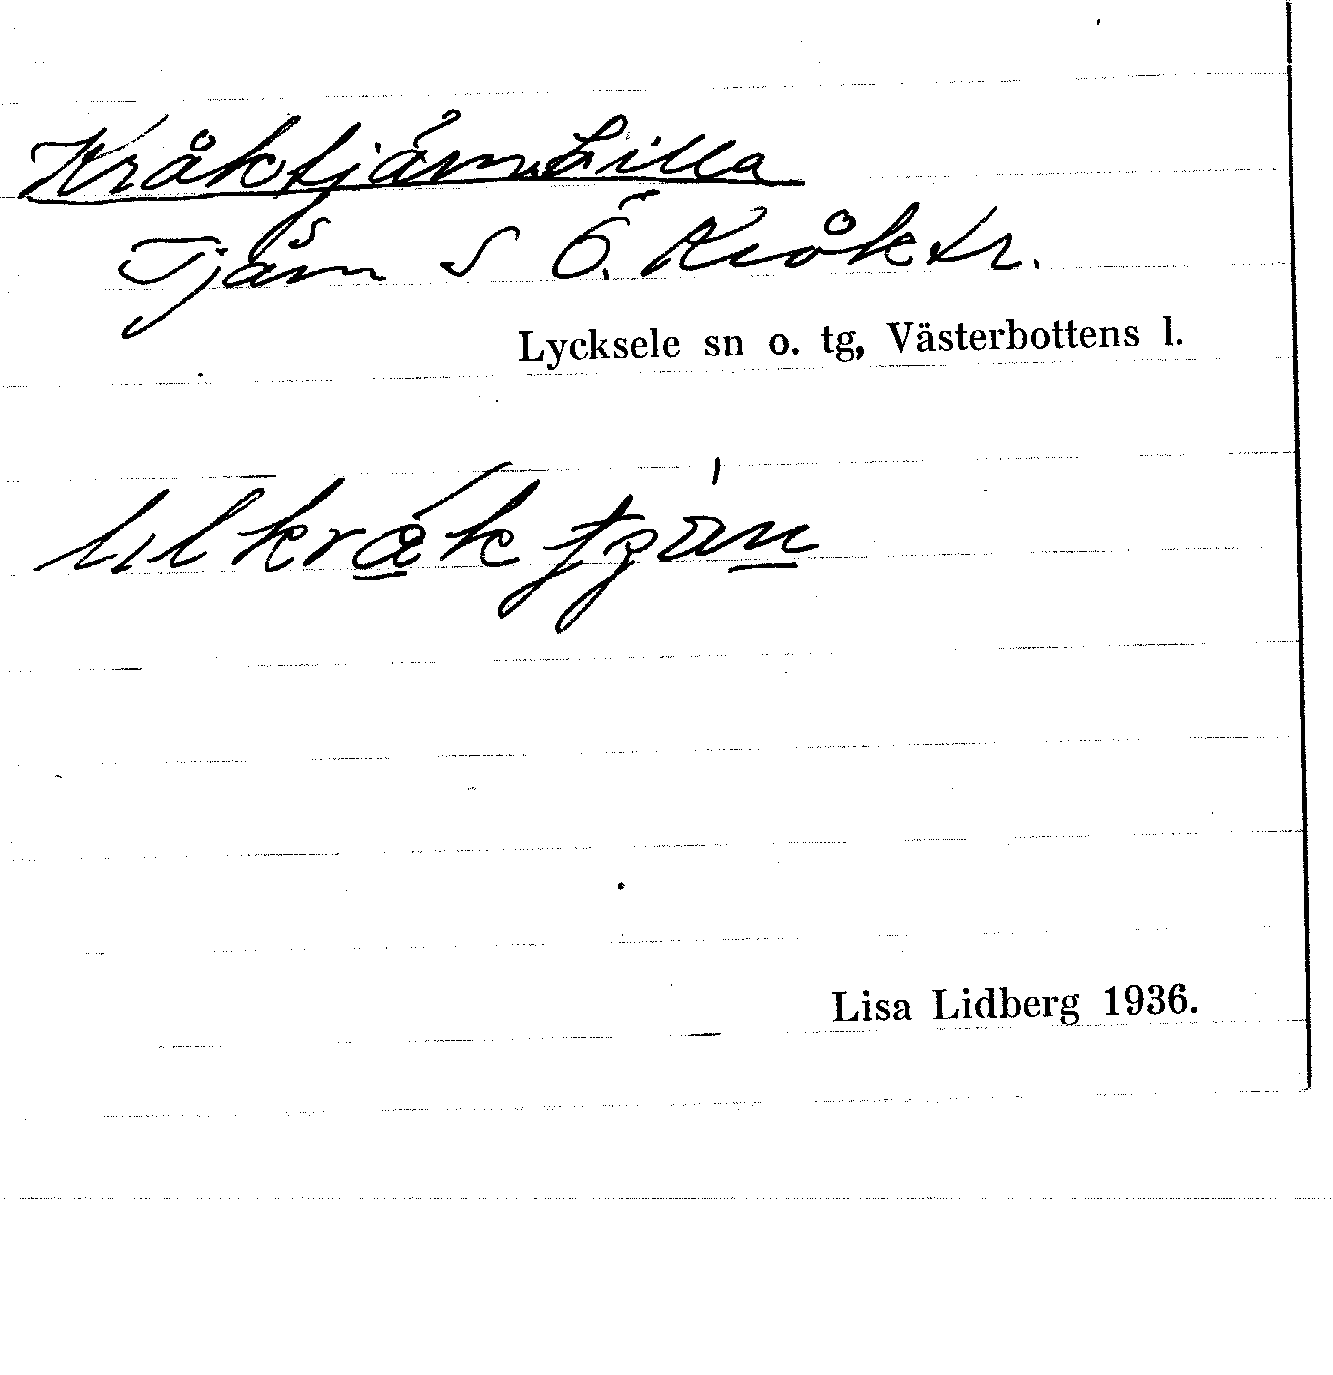 Kråktjärn, Lilla
Tjärn S Ö. Kråktr.
Lycksele sn o. tg, Västerbottens l.
Lisa Lidberg 1936.